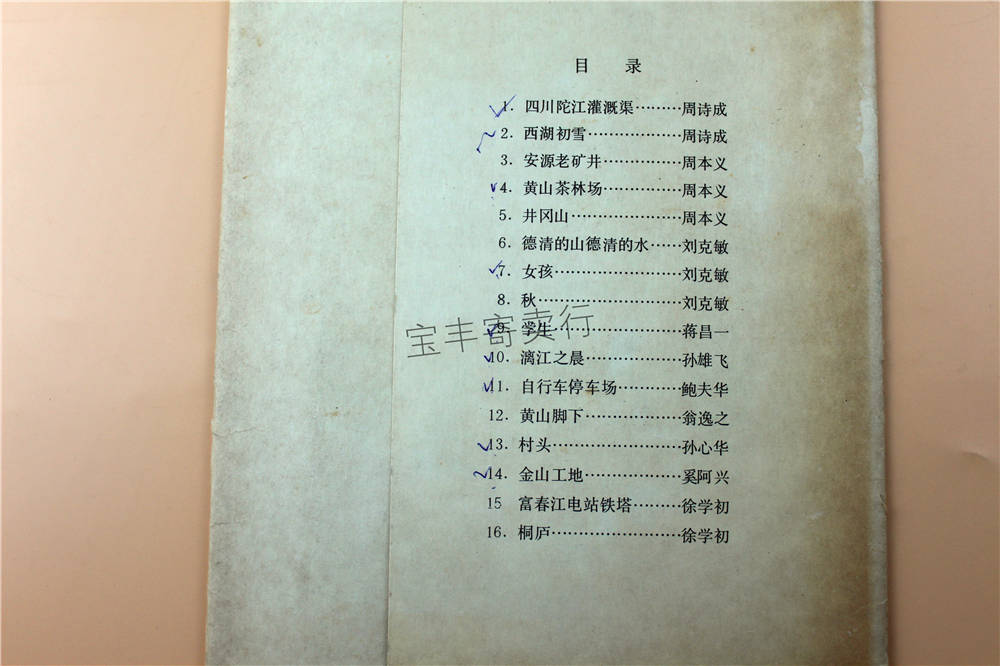 目 录
1. 四川陀江灌溉渠………周诗成
2. 西湖初雪………………周诗成
3. 安源老矿井……………周本义
4. 黄山茶林场……………周本义
5. 井冈山…………………周本义
6. 德清的山德清的水……刘克敏
7. 女孩……………………刘克敏
8. 秋………………………刘克敏
9. 学生……………………蒋昌一
10. 漓江之晨………………孙雄飞
11. 自行车停车场…………鲍夫华
12. 黄山脚下………………翁逸之
13. 村头……………………孙心华
14. 金山工地………………奚阿兴
15 富春江电站铁塔………徐学初
16. 桐庐……………………徐学初
宝丰寄卖行